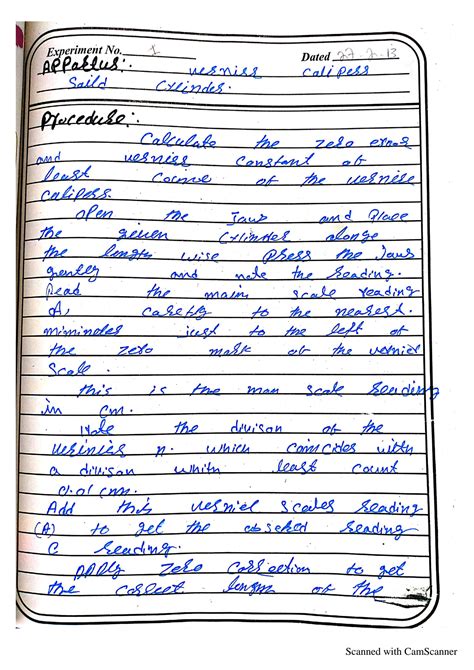 Experiment No. 1 Dated 27-2-13
Apparatus:. vernier Calipers
Saild Cylinder.
Procedure:.
Calculate the zero error
and vernier constant of
least Counc of the vernire
calipers.
open the Jaws and Place
the given Cylinder alonge
the length wise Press the Jaws
gentley and note the Reading.
Read the main scale reading
A, to the nearest.
just to the left of
the zero mark of the verniel
Scale.
this is the man scale Reading
in cm.
Note the divison of the
n. which coincides with
a divison least count
0.01 cm.
Add this verniel scales Reading
(A) to get the Reading
Reading.
APPly zero correction to get
the correct length of the
Scanned with CamScanner